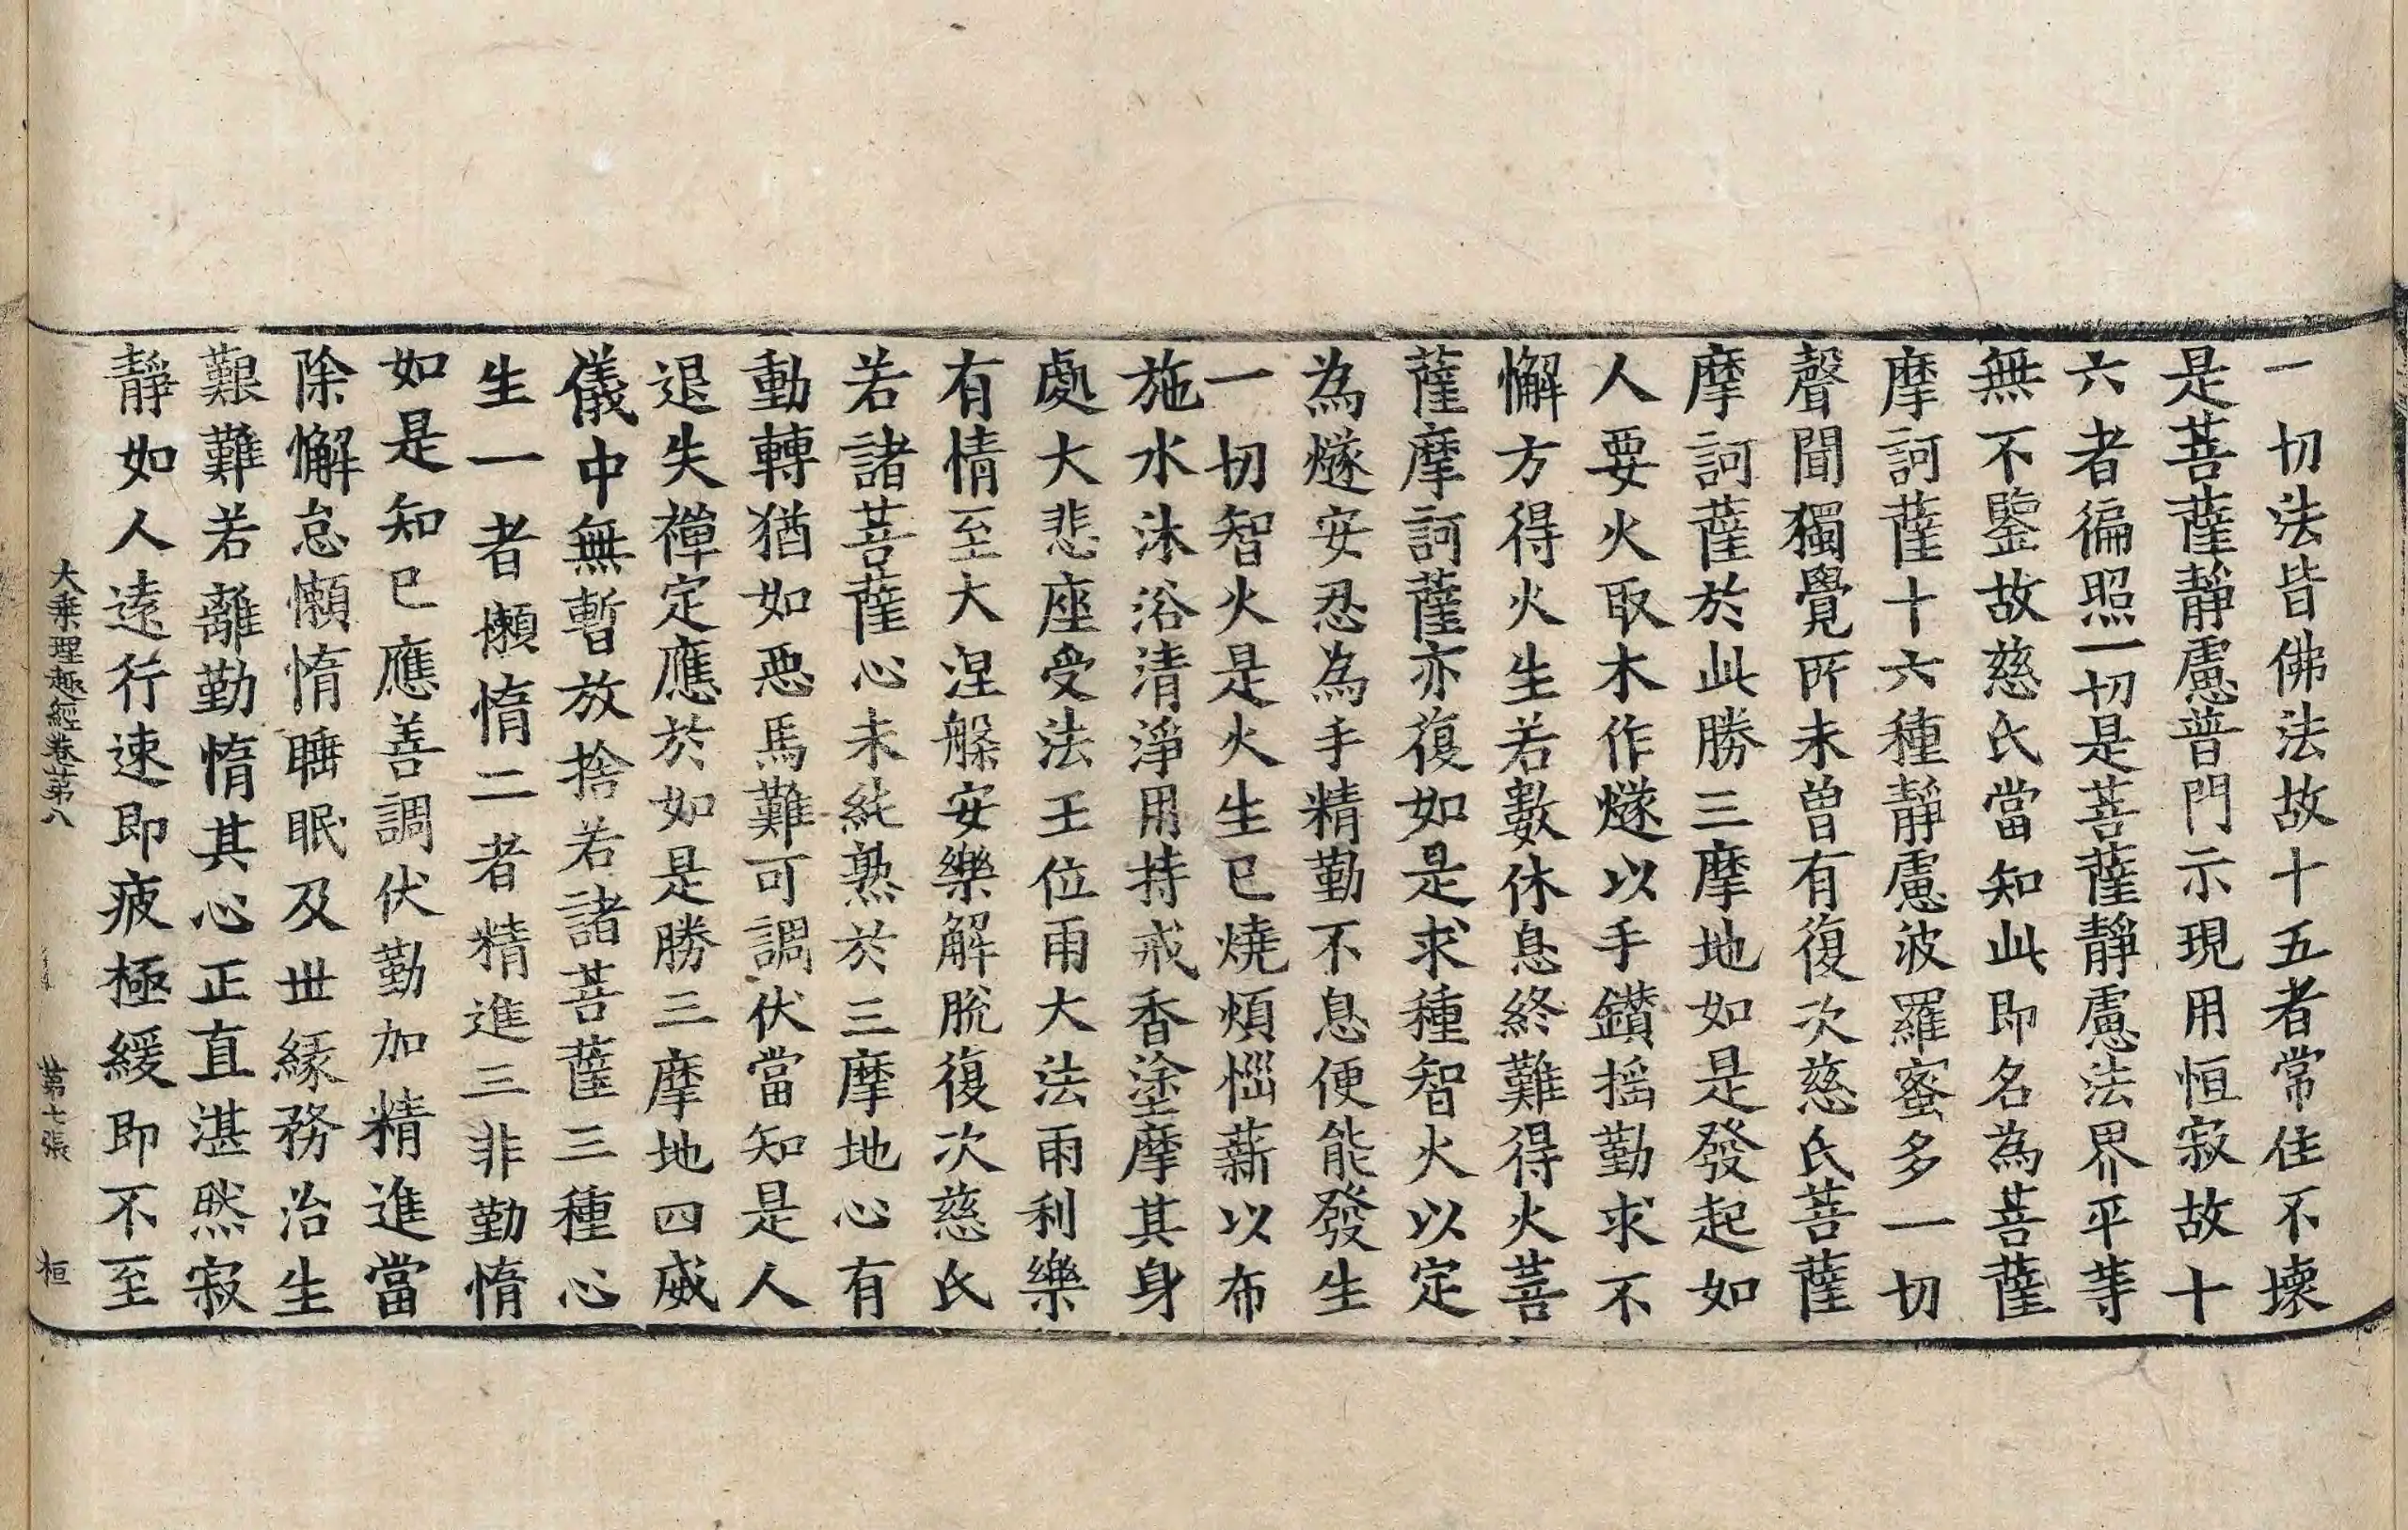 一切法皆佛法故十五者常住不壞
是菩薩靜慮普門示現用恒寂故十
六者徧照一切是菩薩靜慮法界平等
無不鑒故慈氏當知此即名為菩薩
摩訶薩十六種靜慮波羅蜜多一切
聲聞獨覺所未曾有復次慈氏菩薩
摩訶薩於此勝三摩地如是發起如
人要火取木作燧以手鑽搖勤求不
懈方得火生若數休息終難得火菩
薩摩訶薩亦復如是求種智火以定
為燧安忍為手精勤不息便能發生
一切智火是火生已燒煩惱薪以布
施水沐浴清淨用持戒香塗摩其身
處大悲座受法王位雨大法雨利樂
有情至大涅槃安樂解脫復次慈氏
若諸菩薩心未純熟於三摩地心有
動轉猶如惡馬難可調伏當知是人
退失禪定應於如是勝三摩地四威
儀中無暫放捨若諸菩薩三種心
生一者懶惰二者精進三非勤惰
如是知已應善調伏勤加精進當
除懈怠懶惰睡眠及世緣務治生
艱難若離勤惰其心正直湛然寂
靜如人遠行速即疲極緩即不至
大乘理趣經卷第八 第七張 桓